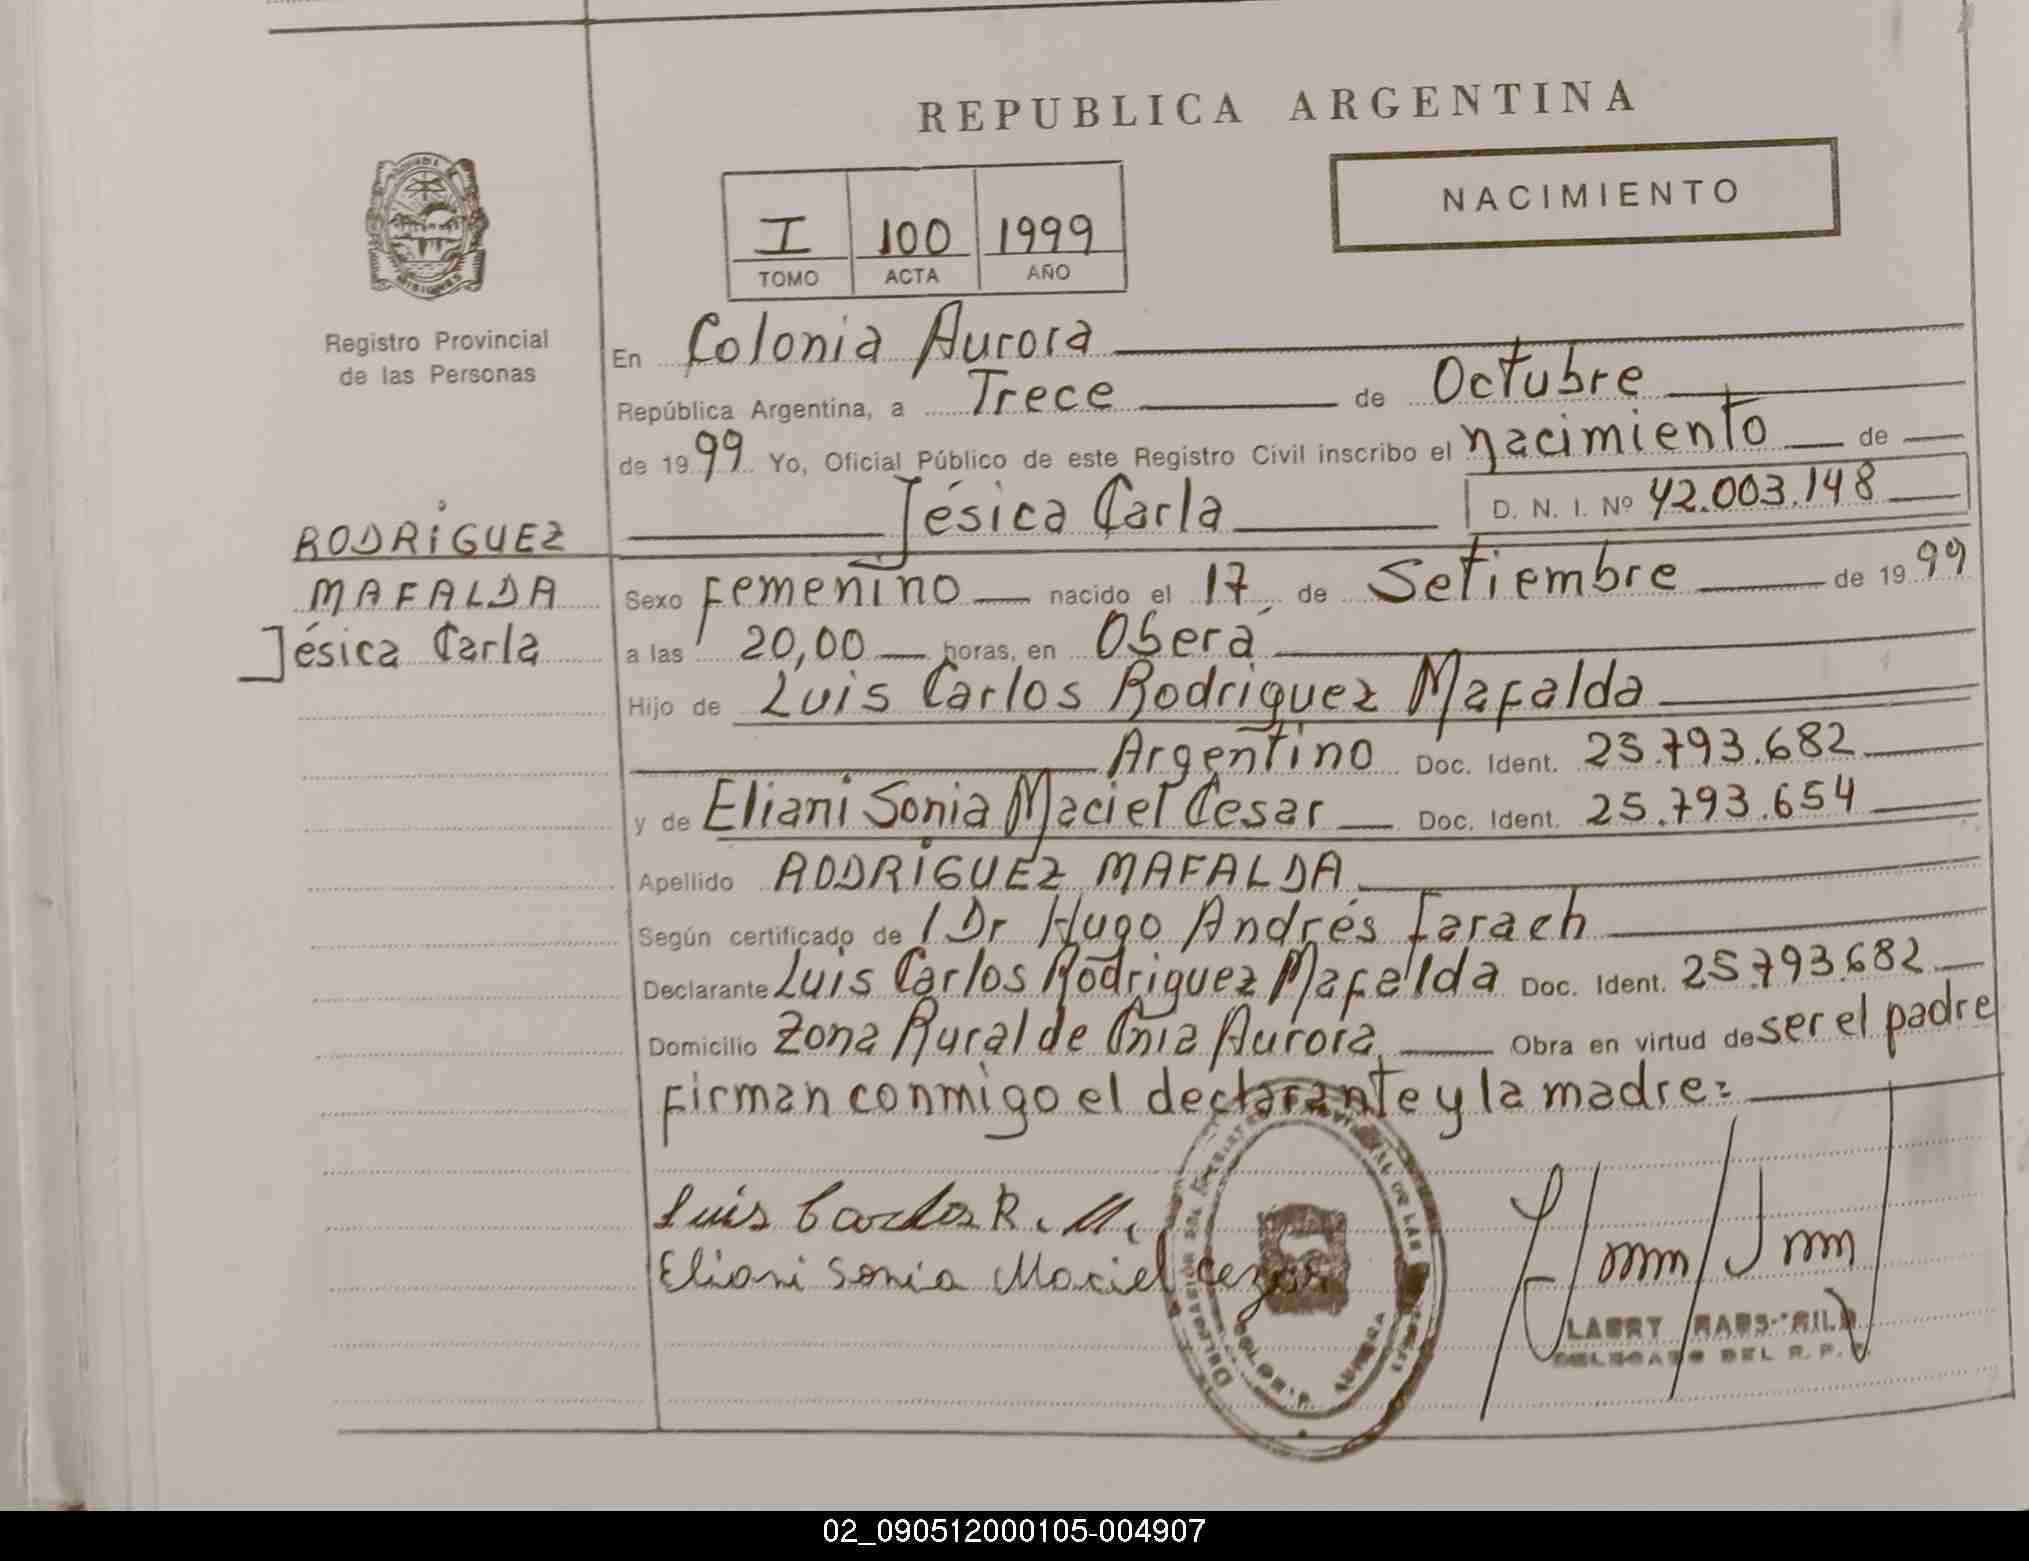 REPUBLICA ARGENTINA
NACIMIENTO
I 100 1999
TOMO ACTA AÑO
Registro Provincial
de las Personas
RODRÍGUEZ
MAFALDA
Jésica Carla
En Colonia Aurora
República Argentina, a Trece de Octubre
de 1999 Yo, Oficial Público de este Registro Civil inscribo el nacimiento de
Jésica Carla D. N. I. Nº 42.003.148
Sexo Femenino nacido el 17 de Setiembre de 1999
a las 20,00 horas, en Oberá
Hijo de Luis Carlos Rodriguez Mafalda
Argentino Doc. Ident. 25.793.682
y de Eliani Sonia Maciel Cesar Doc. Ident. 25.793.654
Apellido RODRÍGUEZ MAFALDA
Según certificado de l Dr Hugo Andrés
Declarante Luis Carlos Rodriguez Mafalda Doc. Ident. 25.793.682
Domicilio Zona Rural de Cnia Aurora Obra en virtud de ser el padre
Firman conmigo el declarante y la madre:
Luis Carlos R. M.
Eliani Sonia Maciel Cezar
DELEGADO DEL R. P.
COLONIA AURORA
02_090512000105-004907